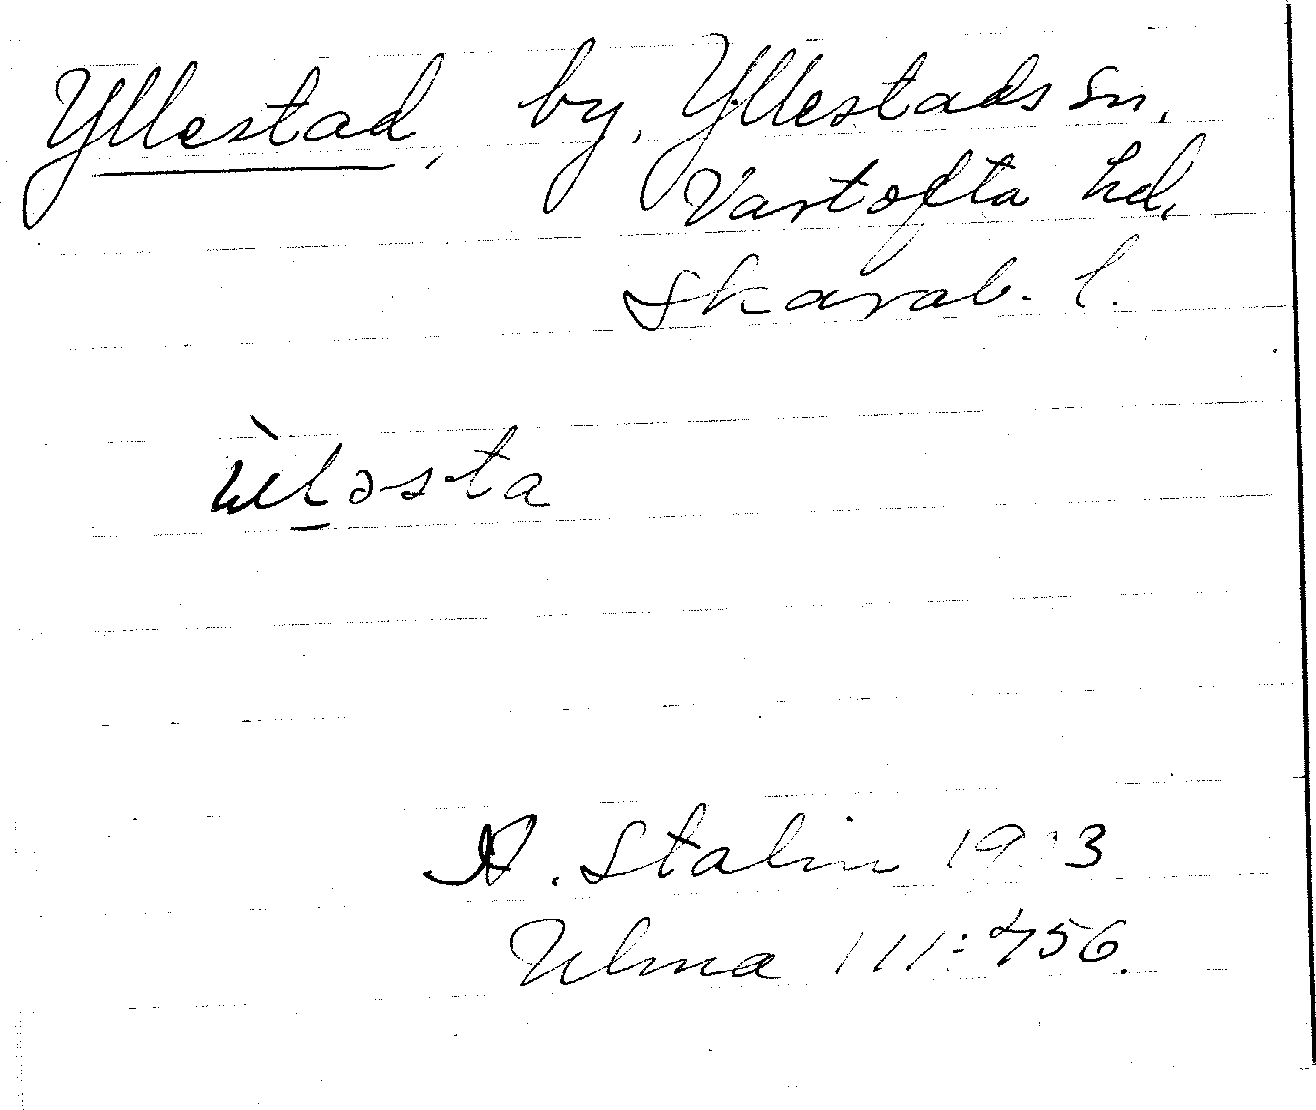 Yllestad, by, Yllestads sn,
Vartofta hd,
Skarab. l.
A. Stalin
Ulma 111:456.